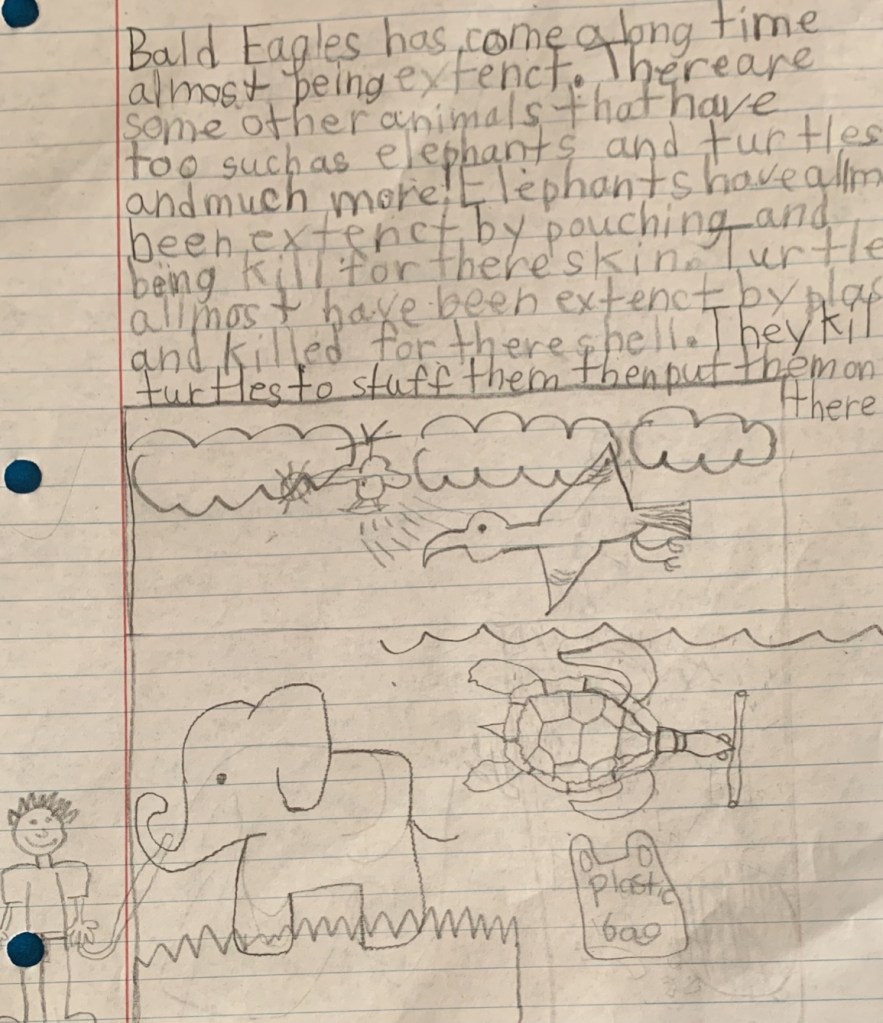 Bald Eagles has come along time
almost being extenct. There are
some other animals that have
too such as elephants and turtles
and much more! Elephants have allm
been extenct by pouching and
being kill for there skin. Turtle
allmost have been extenct by plas
and killed for there shell. They kil
turtles to stuff them then put them on
there
plastic
bag